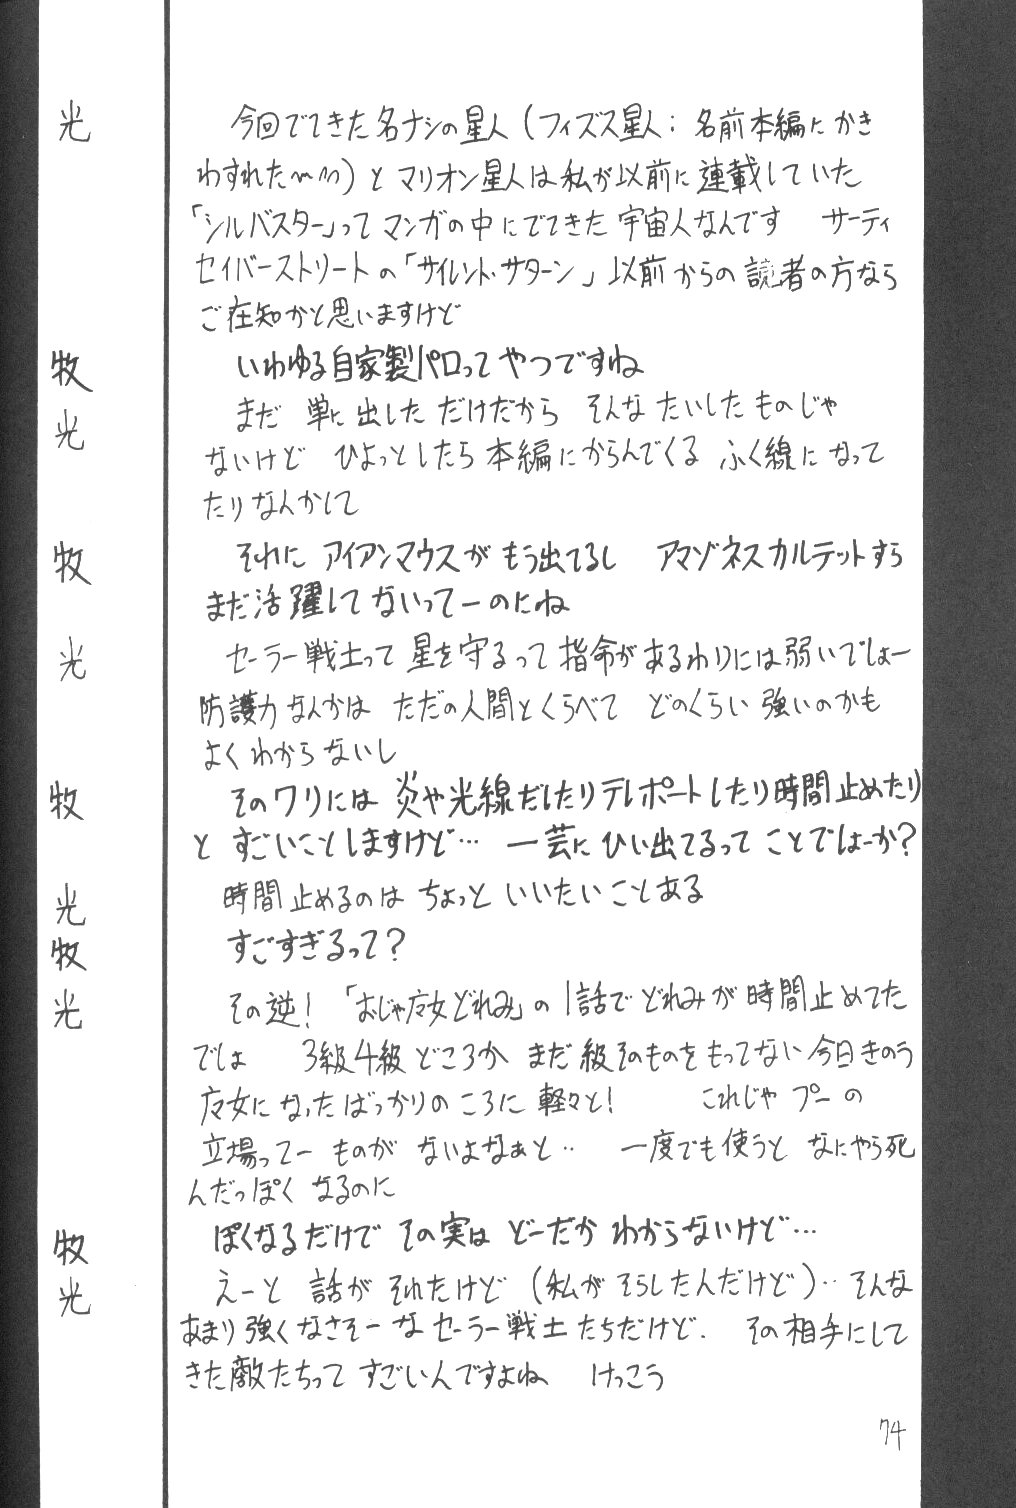 光 今回でてきた名ナシの星人(フィズス星人:名前本編にかき
わすれた~m(__)m)とマリオン星人は私が以前に連載していた
「シルバスター」ってマンガの中にでてきた宇宙人なんです サーティ
セイバーストリートの「サイレント・サターン」以前からの読者の方なら
ご在知かと思いますけど
牧 いわゆる自家製パロってやつですね
光 まだ 単に出しただけだから そんな たいしたものじゃ
ないけど ひょっとしたら本編にからんでくる ふく線になって
たりなんかして
牧 それに アイアンマウスがもう出てるし アマゾネスカルテットすら
まだ活躍してないってーのにね
光 セーラー戦士って星を守るって指命があるわりには弱いでしょー
防護力なんかは ただの人間とくらべて どのくらい強いのかも
よくわからないし
牧 そのワリには炎や光線だしたりテレポートしたり時間止めたり
と すごいことしますけど… 一芸に ひい出てるって ことでしょーか?
光 時間止めるのは ちょっと いいたいことある
牧 すごすぎるって?
光 その逆!「おじゃ魔女どれみ」の1話でどれみが時間止めてた
でしょ 3級4級どころか まだ級そのものをもってない今日きのう
魔女になったばっかりのころに軽々と! これじゃ プーの
立場ってー ものが ないよなぁと‥ 一度でも使うと なにやら死
んだっぽく なるのに
牧 ぽくなるだけで その実は どーだか わからないけど…
光 えーと 話が それたけど(私がそらしたんだけど)‥そんな
あまり強くなさそーなセーラー戦士たちだけど. その相手にして
きた敵たちって すごいんですよね けっこう
74